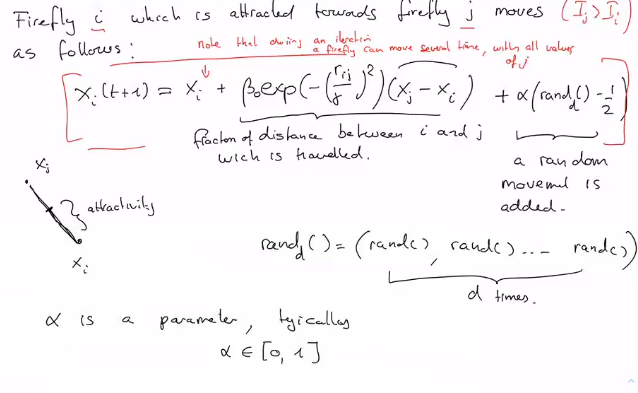 Firefly i which is attracted towards firefly j moves (Ij > Ii)
as follows:
Note that during an iteration
a firefly can move several time, with all values
of j
xi(t+1) = xi + β0 exp(-(rij/γ)²)(xj - xi) + α(randd() - 1/2)
fraction of distance between i and j
wich is travelled.
a random
movement is
added.
xj
attractivity
xi
randd() = (rand(), rand() .... rand())
d times.
α is a parameter, typically
α ∈ [0, 1]